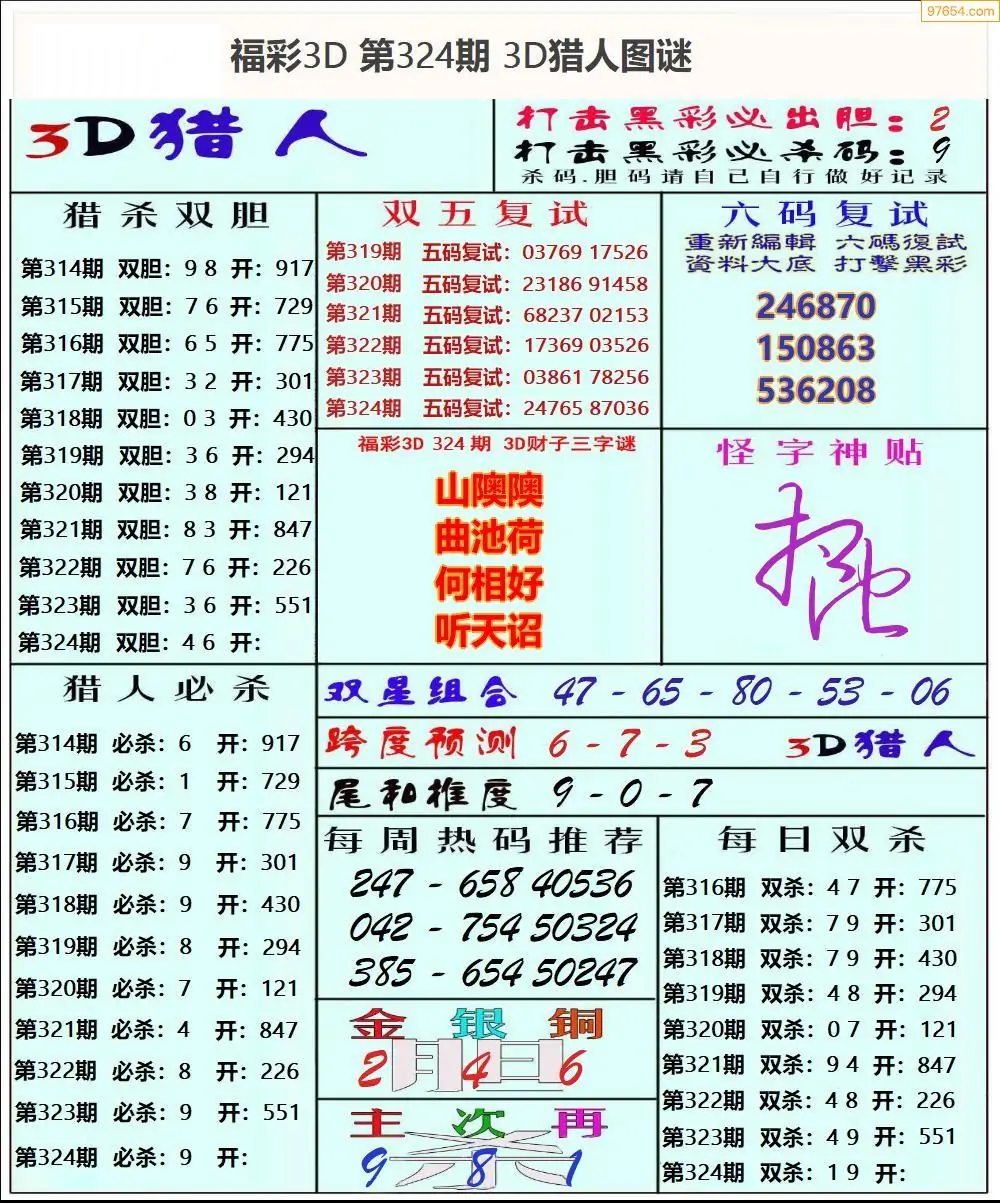 97654.com
福彩3D 第324期 3D猎人图谜
3D猎人
打击黑彩必出胆：2
打击黑彩必杀码：9
杀码.胆码请自己自行做好记录
猎杀双胆
第314期 双胆：98 开：917
第315期 双胆：76 开：729
第316期 双胆：65 开：775
第317期 双胆：32 开：301
第318期 双胆：03 开：430
第319期 双胆：36 开：294
第320期 双胆：38 开：121
第321期 双胆：83 开：847
第322期 双胆：76 开：226
第323期 双胆：36 开：551
第324期 双胆：46 开：
双五复试
第319期 五码复试：03769 17526
第320期 五码复试：23186 91458
第321期 五码复试：68237 02153
第322期 五码复试：17369 03526
第323期 五码复试：03861 78256
第324期 五码复试：24765 87036
六码复试
重新編輯 六碼復試
資料大底 打擊黑彩
246870
150863
536208
福彩3D 324期 3D财子三字谜
山隩隩
曲池荷
何相好
听天诏
怪字神贴
猎人必杀
第314期 必杀：6 开：917
第315期 必杀：1 开：729
第316期 必杀：7 开：775
第317期 必杀：9 开：301
第318期 必杀：9 开：430
第319期 必杀：8 开：294
第320期 必杀：7 开：121
第321期 必杀：4 开：847
第322期 必杀：8 开：226
第323期 必杀：9 开：551
第324期 必杀：9 开：
双星组合 47-65-80-53-06
跨度预测 6-7-3 3D猎人
尾和推度 9-0-7
每周热码推荐
247-658 40536
042-754 50324
385-654 50247
金银铜
胆
2 4 6
主次再
杀
9 8 1
每日双杀
第316期 双杀：47 开：775
第317期 双杀：79 开：301
第318期 双杀：79 开：430
第319期 双杀：48 开：294
第320期 双杀：07 开：121
第321期 双杀：94 开：847
第322期 双杀：48 开：226
第323期 双杀：49 开：551
第324期 双杀：19 开：